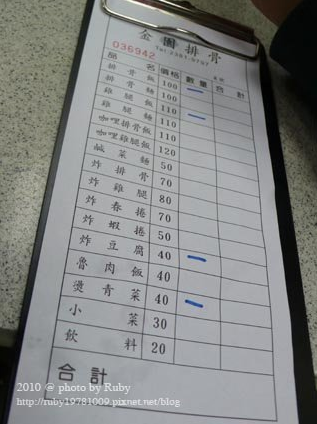 金園排骨
Tel:2381-9797
036942
品名 價格 數量 合計
排骨飯 100 一
排骨麵 100
雞腿飯 110 一
雞腿麵 110
咖哩排骨飯 110
咖哩雞腿飯 120
鹹菜麵 50
炸排骨 70
炸雞腿 80
炸春捲 70
炸蝦捲 50
炸豆腐 40 一
魯肉飯 40
燙青菜 40 一
小菜 30
飲料 20
合計
2010 @ photo by Ruby
http://ruby19781009.pixnet.net/blog